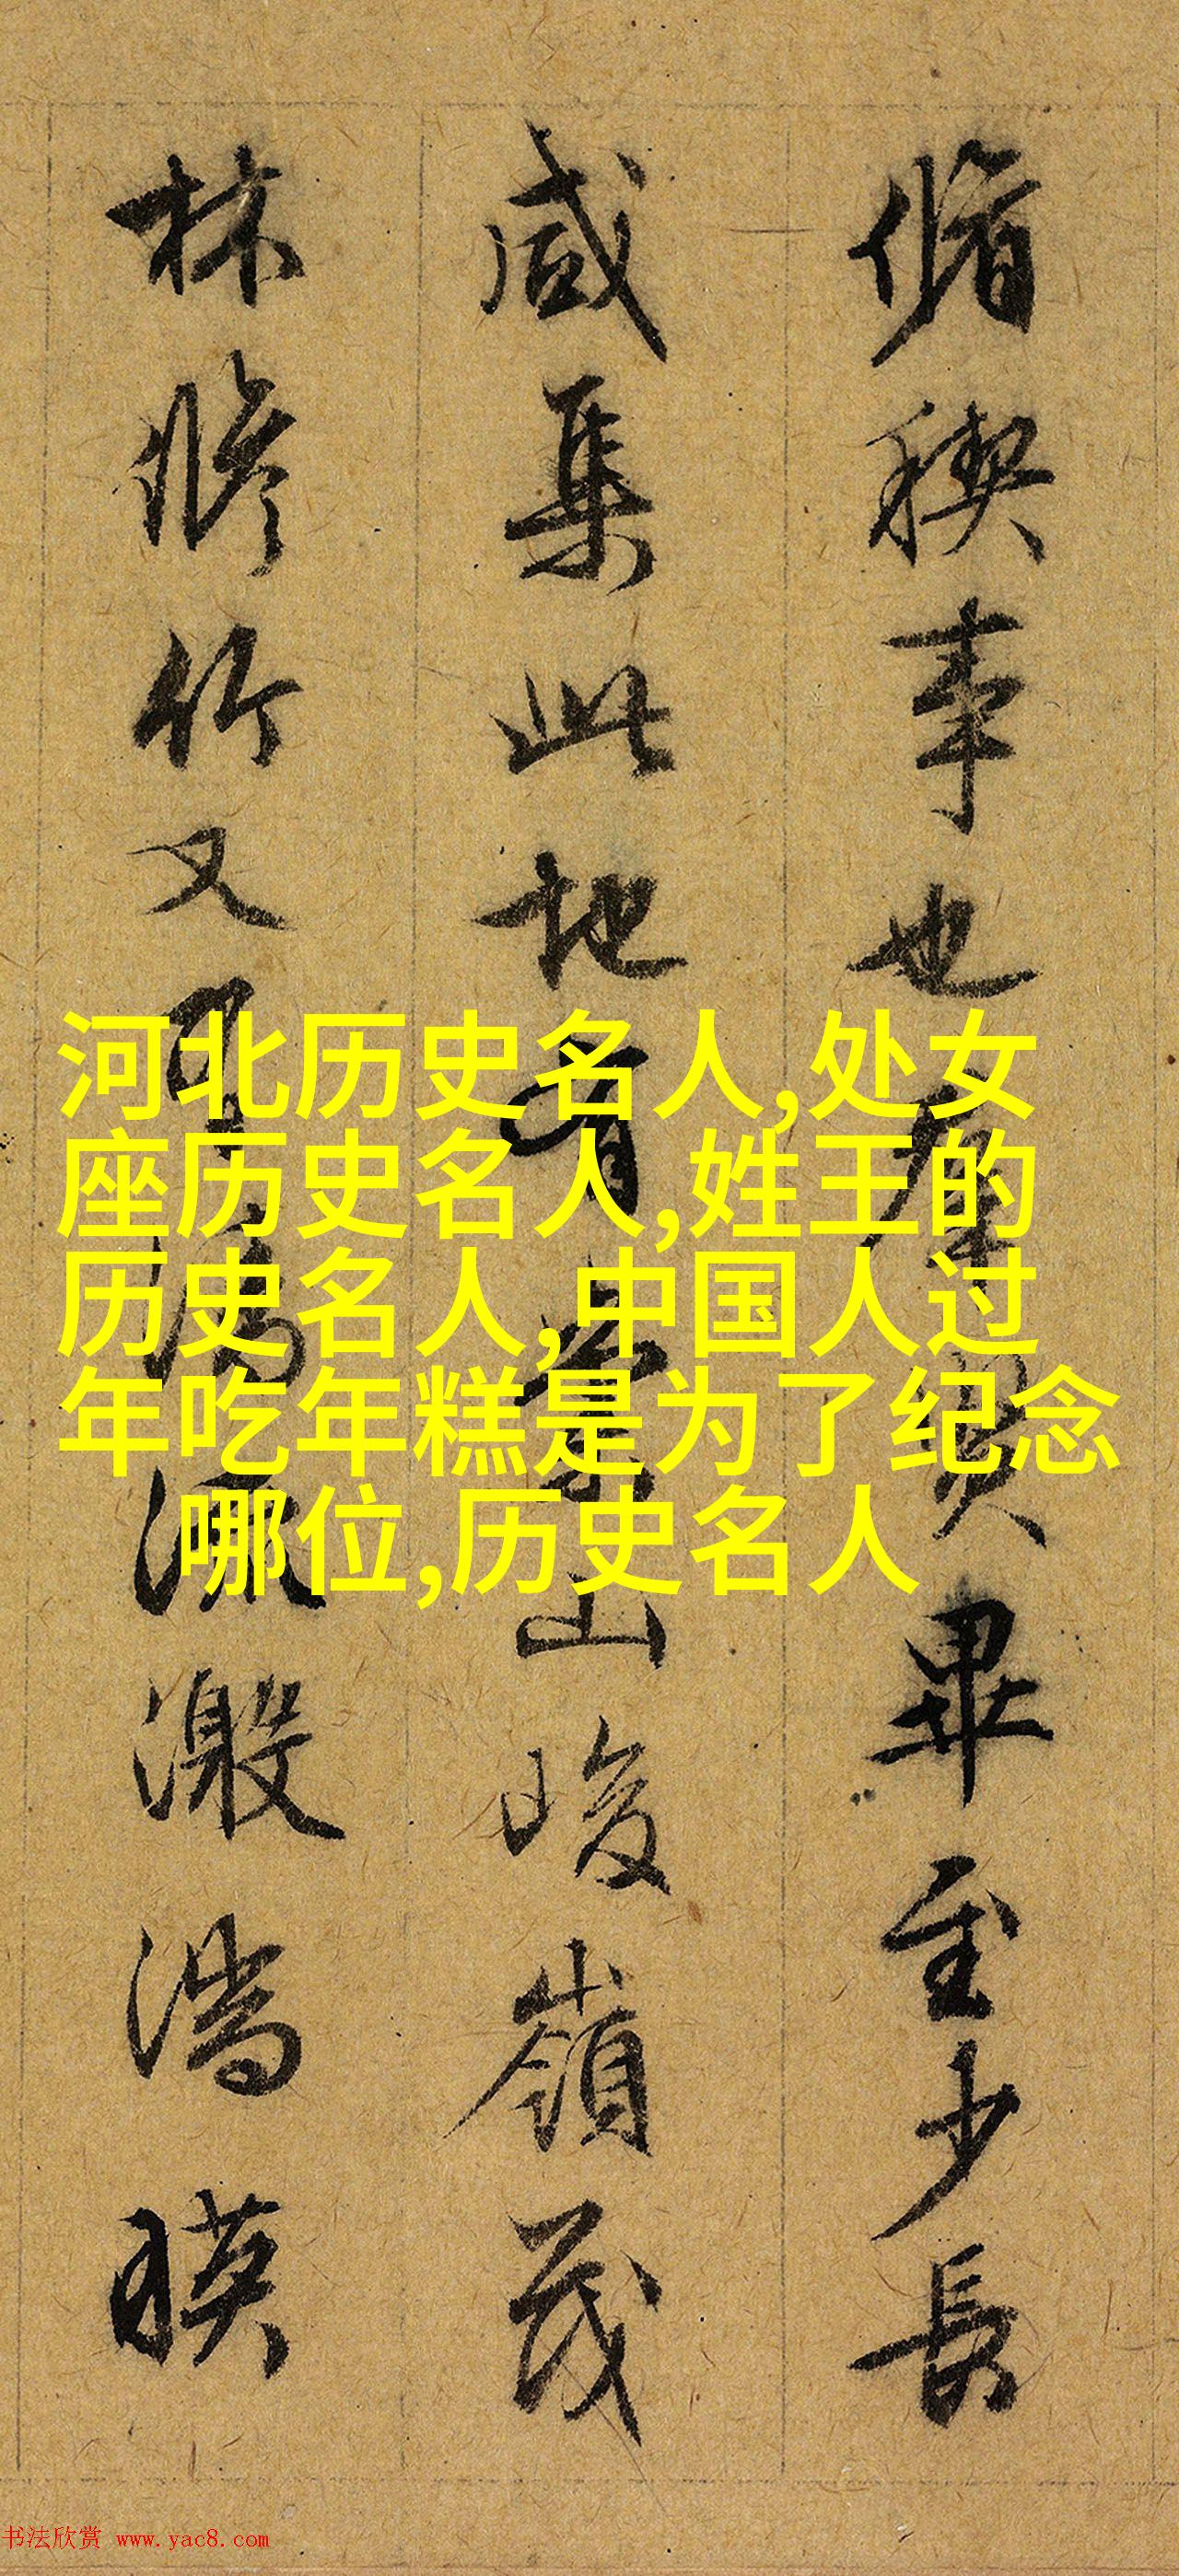 脩稧事也羣賢畢至少長
咸集此地有崇山峻嶺茂
林修竹又有清流激湍暎
河北历史名人,处女
座历史名人,姓王的
历史名人,中国人过
年吃年糕是为了纪念
哪位,历史名人
书法欣赏 www.yac8.com